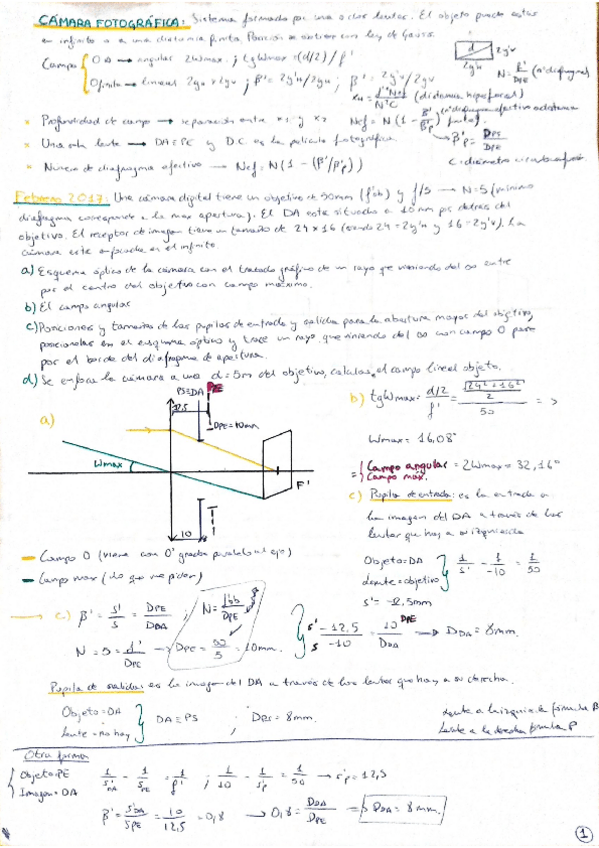 CÁMARA FOTOGRÁFICA: Sistema formado por una o dos lentes. El objeto puede estar
en infinito o a una distancia finita. Posición se obtiene con ley de Gauss.
Campo { OA → angular 2Wmax. ; tgWmax = (d/2) / f'
O finita → lineal 2yu x 2yv ; β' = 2y'u/2yu ; β' = 2y'v/2yv
d 2y'v
2y'u
N = f'/DPE (nº diafragma)
xH = f'²Nef/N²C (distancia hiperfocal)
* Profundidad de campo → separación entre x1 y x2 Nef = N(1 - β'/β'p)
* Una sola lente → DA=PE y D.C. es la película fotográfica β'p = DPS/DPE
* Número de diafragma efectivo → Nef = N(1 - (β'/β'p))
Febrero 2017: Una cámara digital tiene un objetivo de 50mm (f'ob) y f/5 → N=5 (mínimo
diafragma corresponde a la max apertura). El DA está situado a 10mm por detrás del
objetivo. El receptor de imagen tiene un tamaño de 24x16 (siendo 24 = 2y'u y 16 = 2y'v). La
cámara está enfocada en el infinito.
a) Esquema óptico de la cámara con el trazado gráfico de un rayo que viniendo del ∞ entre
por el centro del objetivo con campo máximo.
b) El campo angular
c) Posiciones y tamaños de las pupilas de entrada y salida para la abertura mayor del objetivo,
posicionarlas en el esquema óptico y trace un rayo que viniendo del ∞ con campo 0 pase
por el borde del diafragma de apertura.
d) Se enfoca la cámara a una d=5m del objetivo, calcular el campo lineal objeto.
a)
PS=DA PE
12,5
DPE=10mm
Wmax
F'
10
b) tgWmax = d/2 / f' = (√24²+16² / 2) / 50 =>
Wmax = 16,08°
Campo angular = 2Wmax = 32,16°
Campo máx.
c) Pupila de entrada: es la entrada o
la imagen del DA a través de las
lentes que hay a su izquierda
Objeto=DA
Lente=objetivo } 1/s' - 1/-10 = 1/50
s' = -12,5mm
Campo 0 (viene con 0º grados paralelo al eje)
Campo max (lo que me piden)
→ c) β' = s'/s = DPE/DDA ; N = f'ob/DPE
N = 5 = f'/DPE → DPE = 50/5 = 10mm.
s'/s -12,5/-10 = 10 DPE/DDA → DDA = 8mm.
Pupila de salida: es la imagen del DA a través de las lentes que hay a su derecha.
Objeto=DA
Lente=no hay } DA=PS ; DPS = 8mm.
Lente a la izquierda fórmula β
Lente a la derecha fórmula P
Otra forma
Objeto:PE
Imagen=DA 1/s'DA - 1/sPE = 1/f' ; 1/10 - 1/s'p = 1/50 → s'p = 12,5
β' = s'DA/sPE = 10/12,5 = 0,8 → 0,8 = DDA/DPE => DDA = 8mm.
1